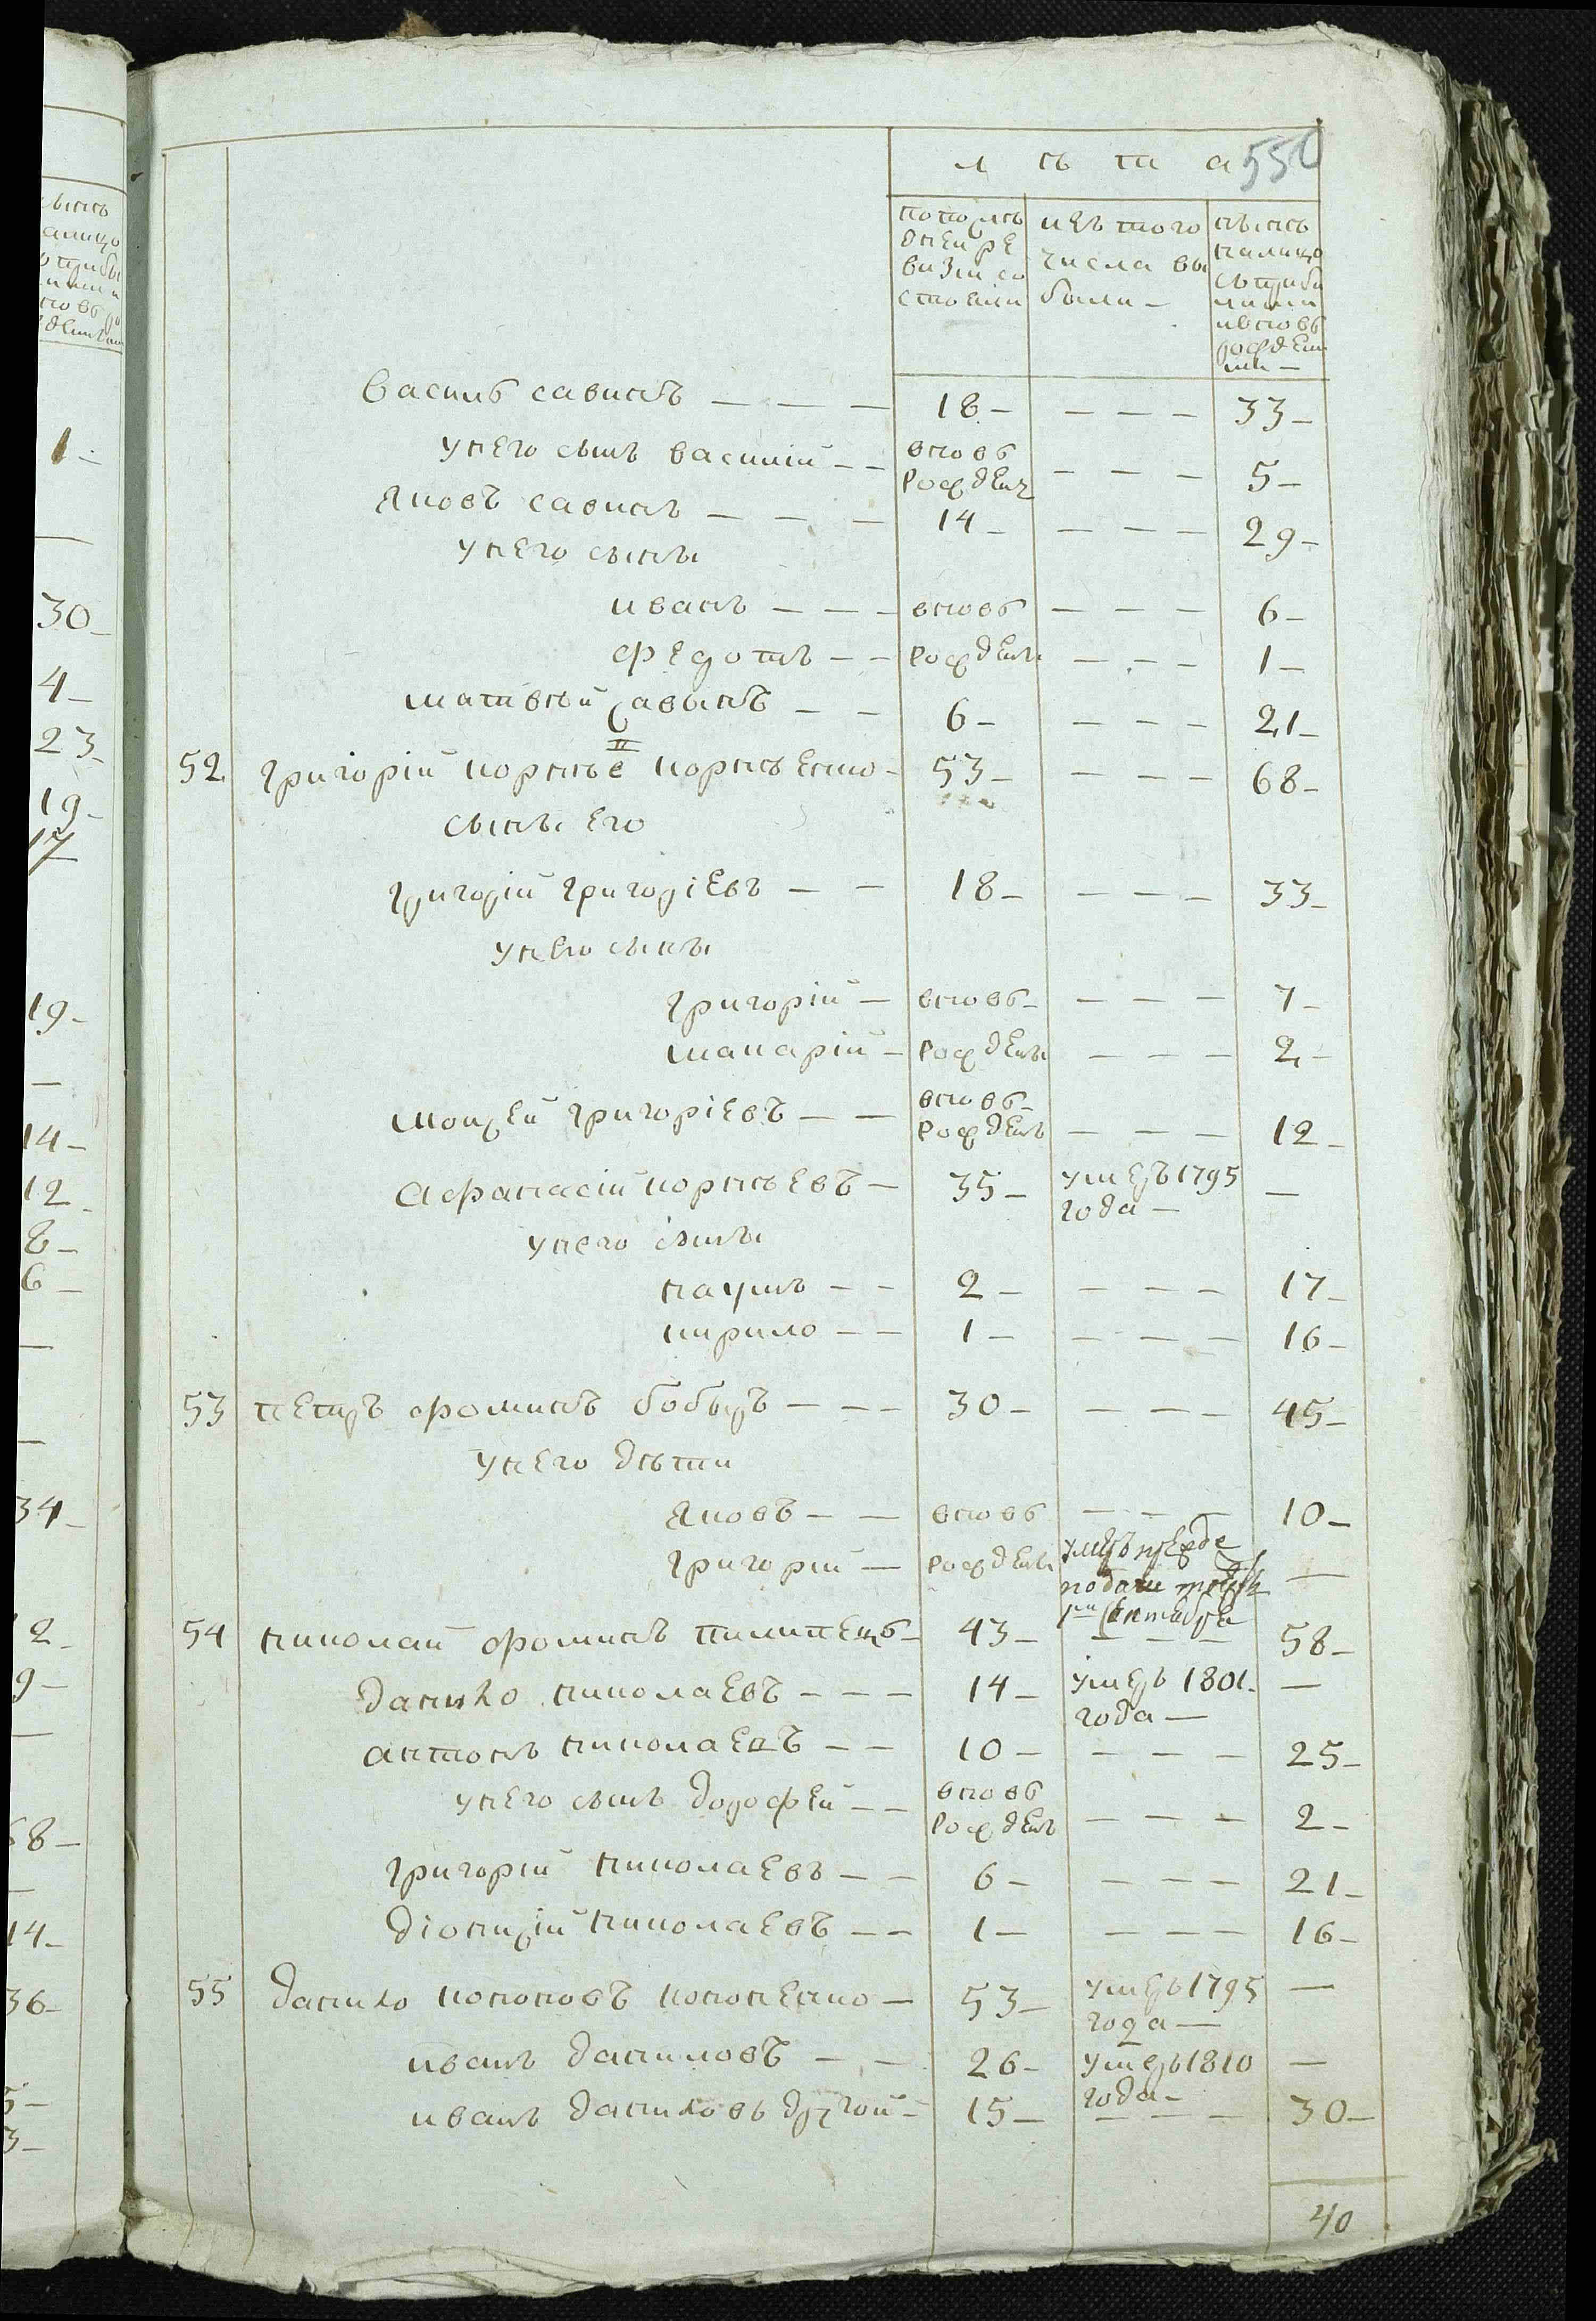 лѣта 550
попослѣ
дней ре
визіи со
стояли
изъ того
числа вы
были —
нынѣ
налицо
съ прибы
лыми
и вновь
рожденны
ми —
Василь Савинъ — — — 18 — — — — 33 —
у него сынъ Василій — — вновь рожденъ — — — 5 —
Яковъ Савинъ — — — 14 — — — — 29 —
у него сыны
Иванъ — — — вновь — — — 6 —
Федотъ — — рождены — — — 1 —
Матвѣй Савынъ — — 6 — — — — 21 —
52 Григорій Корнѣе II Корнѣенко — 53 — — — — 68 —
сыны его
Григорій Григоріевъ — — 18 — — — — 33 —
у него сыны
Григорій — вновь — — — — 7 —
Макарій — рождены — — — 2 —
Моисей Григоріевъ — — вновь — рожденъ — — — 12 —
Афанасій Корнѣевъ — 35 — умеръ 1795 года — —
у него сыны
Наумъ — — 2 — — — — 17 —
Кирило — — 1 — — — — 16 —
53 Петръ Фоминъ Бобыръ — — — 30 — — — — 45 —
у него дѣти
Яковъ — — вновь — — — 10 —
Григорій — рождены умеръ прежде подачи —
54 Николай Фоминъ Пилипець — 43 — — — — 58 —
Данило Николаевъ — — — 14 — умеръ 1801 года — —
Антонъ Николаевъ — — 10 — — — — 25 —
у него сынъ Дорофей — — вновь рожденъ — — — 2 —
Григорій Николаевъ — — 6 — — — — 21 —
Діонизій Николаевъ — — 1 — — — — 16 —
55 Данило Кононовъ Кононенко — 53 — умеръ 1795 года — —
Иванъ Даниловъ — — 26 — умеръ 1810 года — —
Иванъ Даниловъ другой — 15 — — — — 30 —
40
1 —
—
30 —
4 —
23 —
19 —
17
19 —
—
14 —
12 —
8 —
6 —
—
—
34 —
2 —
9 —
—
68 —
—
14 —
36 —
5 —
3 —